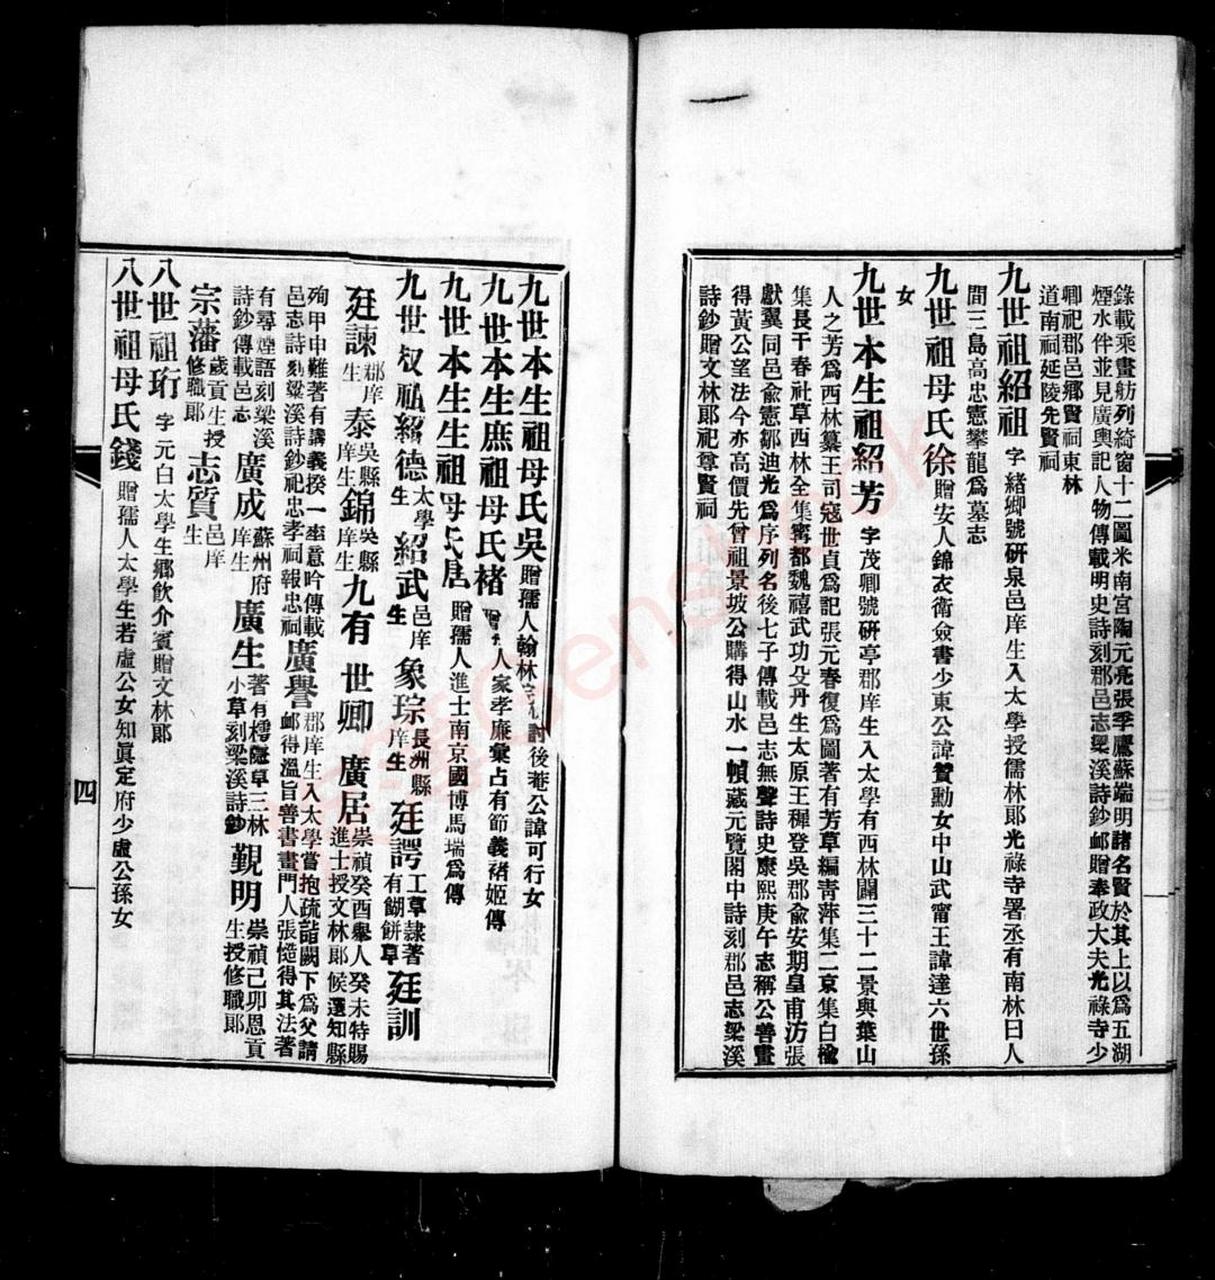 錄載乘畫舫列綺窗十二圖米南宮陶元亮張季鷹蘇端明諸名賢於其上以爲五湖
煙水伴並見廣輿記人物傳載明史詩刻郡邑志梁溪詩鈔邮贈奉政大夫光祿寺少
卿祀郡邑鄉賢祠東林
道南祠延陵先賢祠
九世祖紹祖 字緒卿號研泉邑庠生入太學授儒林郎光祿寺署丞有南林日人
間三島高忠憲攀龍爲墓志
九世祖母氏徐 贈安人錦衣衛僉書少東公諱贊勳女中山武甯王諱達六世孫
女
九世本生祖紹芳 字茂卿號研亭郡庠生入太學有西林闢三十二景與葉山
人之芳爲西林纂王司寇世貞爲記張元春復爲圖著有芳草編靑萍集二京集白楡
集長干春社草西林全集寗都魏禧武功殳丹生太原王穉登吳郡兪安期皇甫汸張
獻翼同邑俞憲鄒迪光爲序列名後七子傳載邑志無聲詩史康熙庚午志稱公善畫
得黃公望法今亦高價先曾祖景坡公購得山水一幀藏元覽閣中詩刻郡邑志梁溪
詩鈔贈文林郎祀尊賢祠
九世本生祖母氏吳 贈孺人翰林 討後菴公諱可行女
九世本生庶祖母氏褚 人家孝廉彙占有節義褚姬傳
九世本生生祖母氏居 贈孺人進士南京國博馬瑞爲傳
九世叔祖紹德 太學生 紹武 邑庠生 象琮 長洲縣庠生 廷諤 工草隸著有餬餅草 廷訓
廷諫 郡庠生 泰 吳縣庠生 錦 吳縣庠生 九有 世卿 廣居 崇禎癸酉舉人癸未特賜進士授文林郎候選知縣
殉甲申難著有講義揆一座意吟傳載邑志詩刻粱溪詩鈔祀忠孝祠報忠祠 廣譽 郡庠生入太學嘗抱疏詣闕下爲父請邮得溫旨善書畫門人張慥得其法著
有尋煙語刻梁溪詩鈔傳載邑志 廣成 蘇州府庠生 廣生 著有樗隱草三林小草刻梁溪詩鈔 觀明 崇禎己卯恩貢生授修職郎
宗藩 歲貢生授修職郎 志質 邑庠生
八世祖珩 字元白太學生鄉飲介賓贈文林郎
八世祖母氏錢 贈孺人太學生若虛公女知眞定府少虛公孫女
四